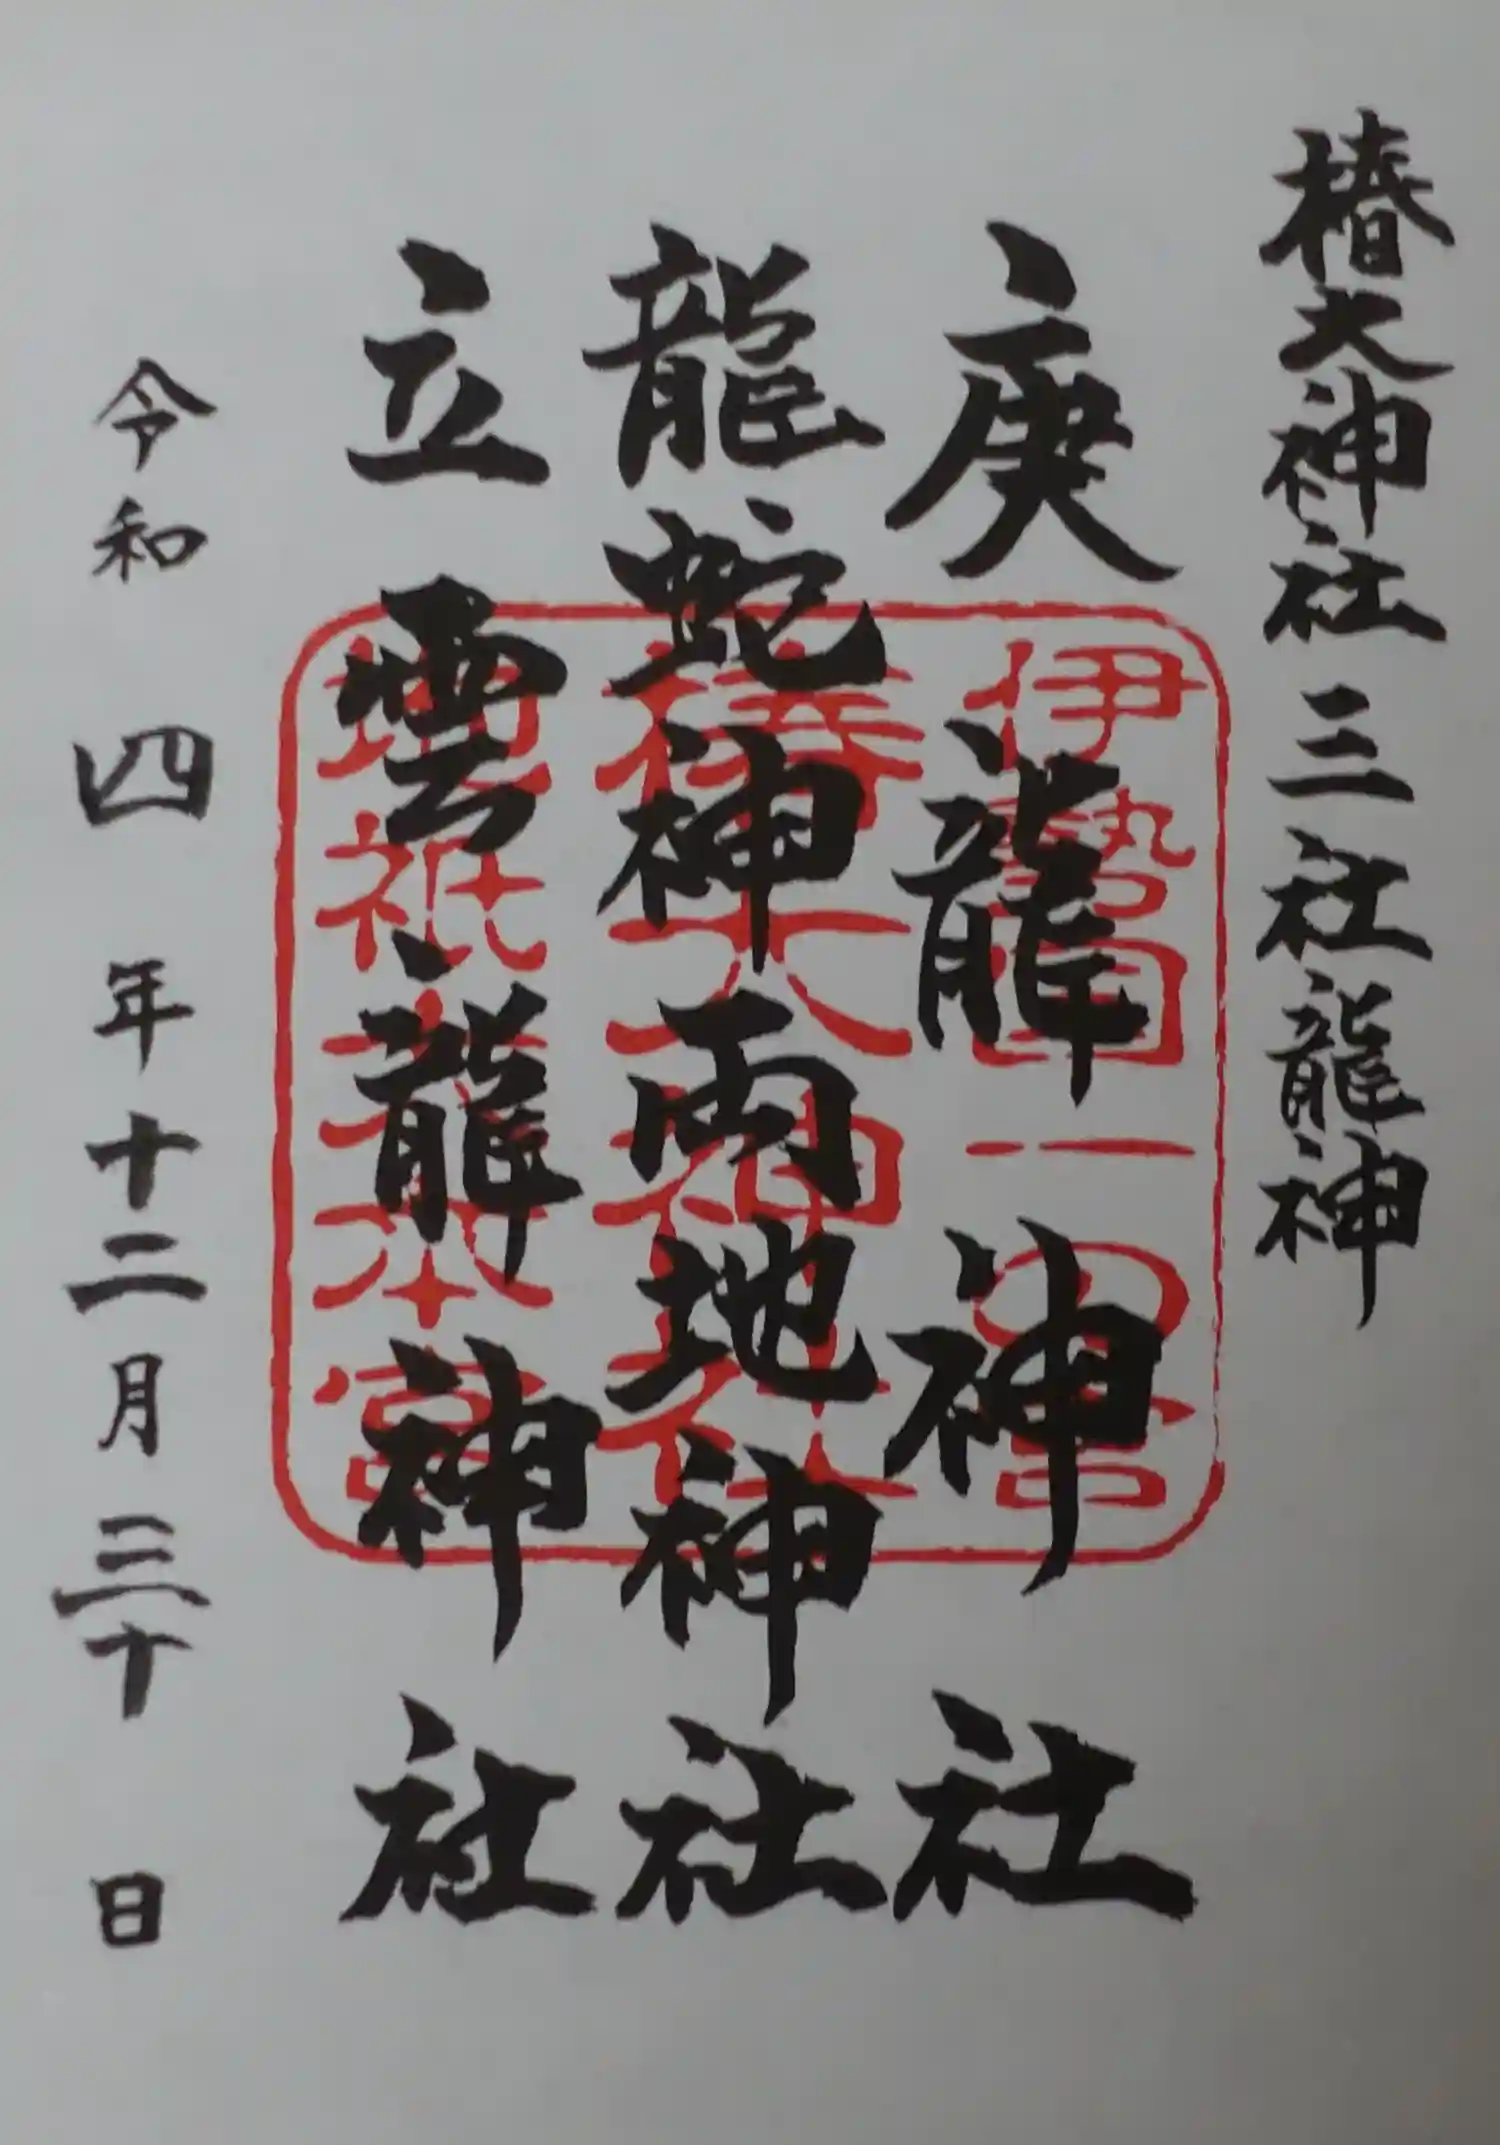 椿大神社 三社龍神
庚龍神社
龍蛇神両地神社
立雲龍神社
令和四年十二月三十日
伊勢国一の宮
椿大神社
地祇大本宮